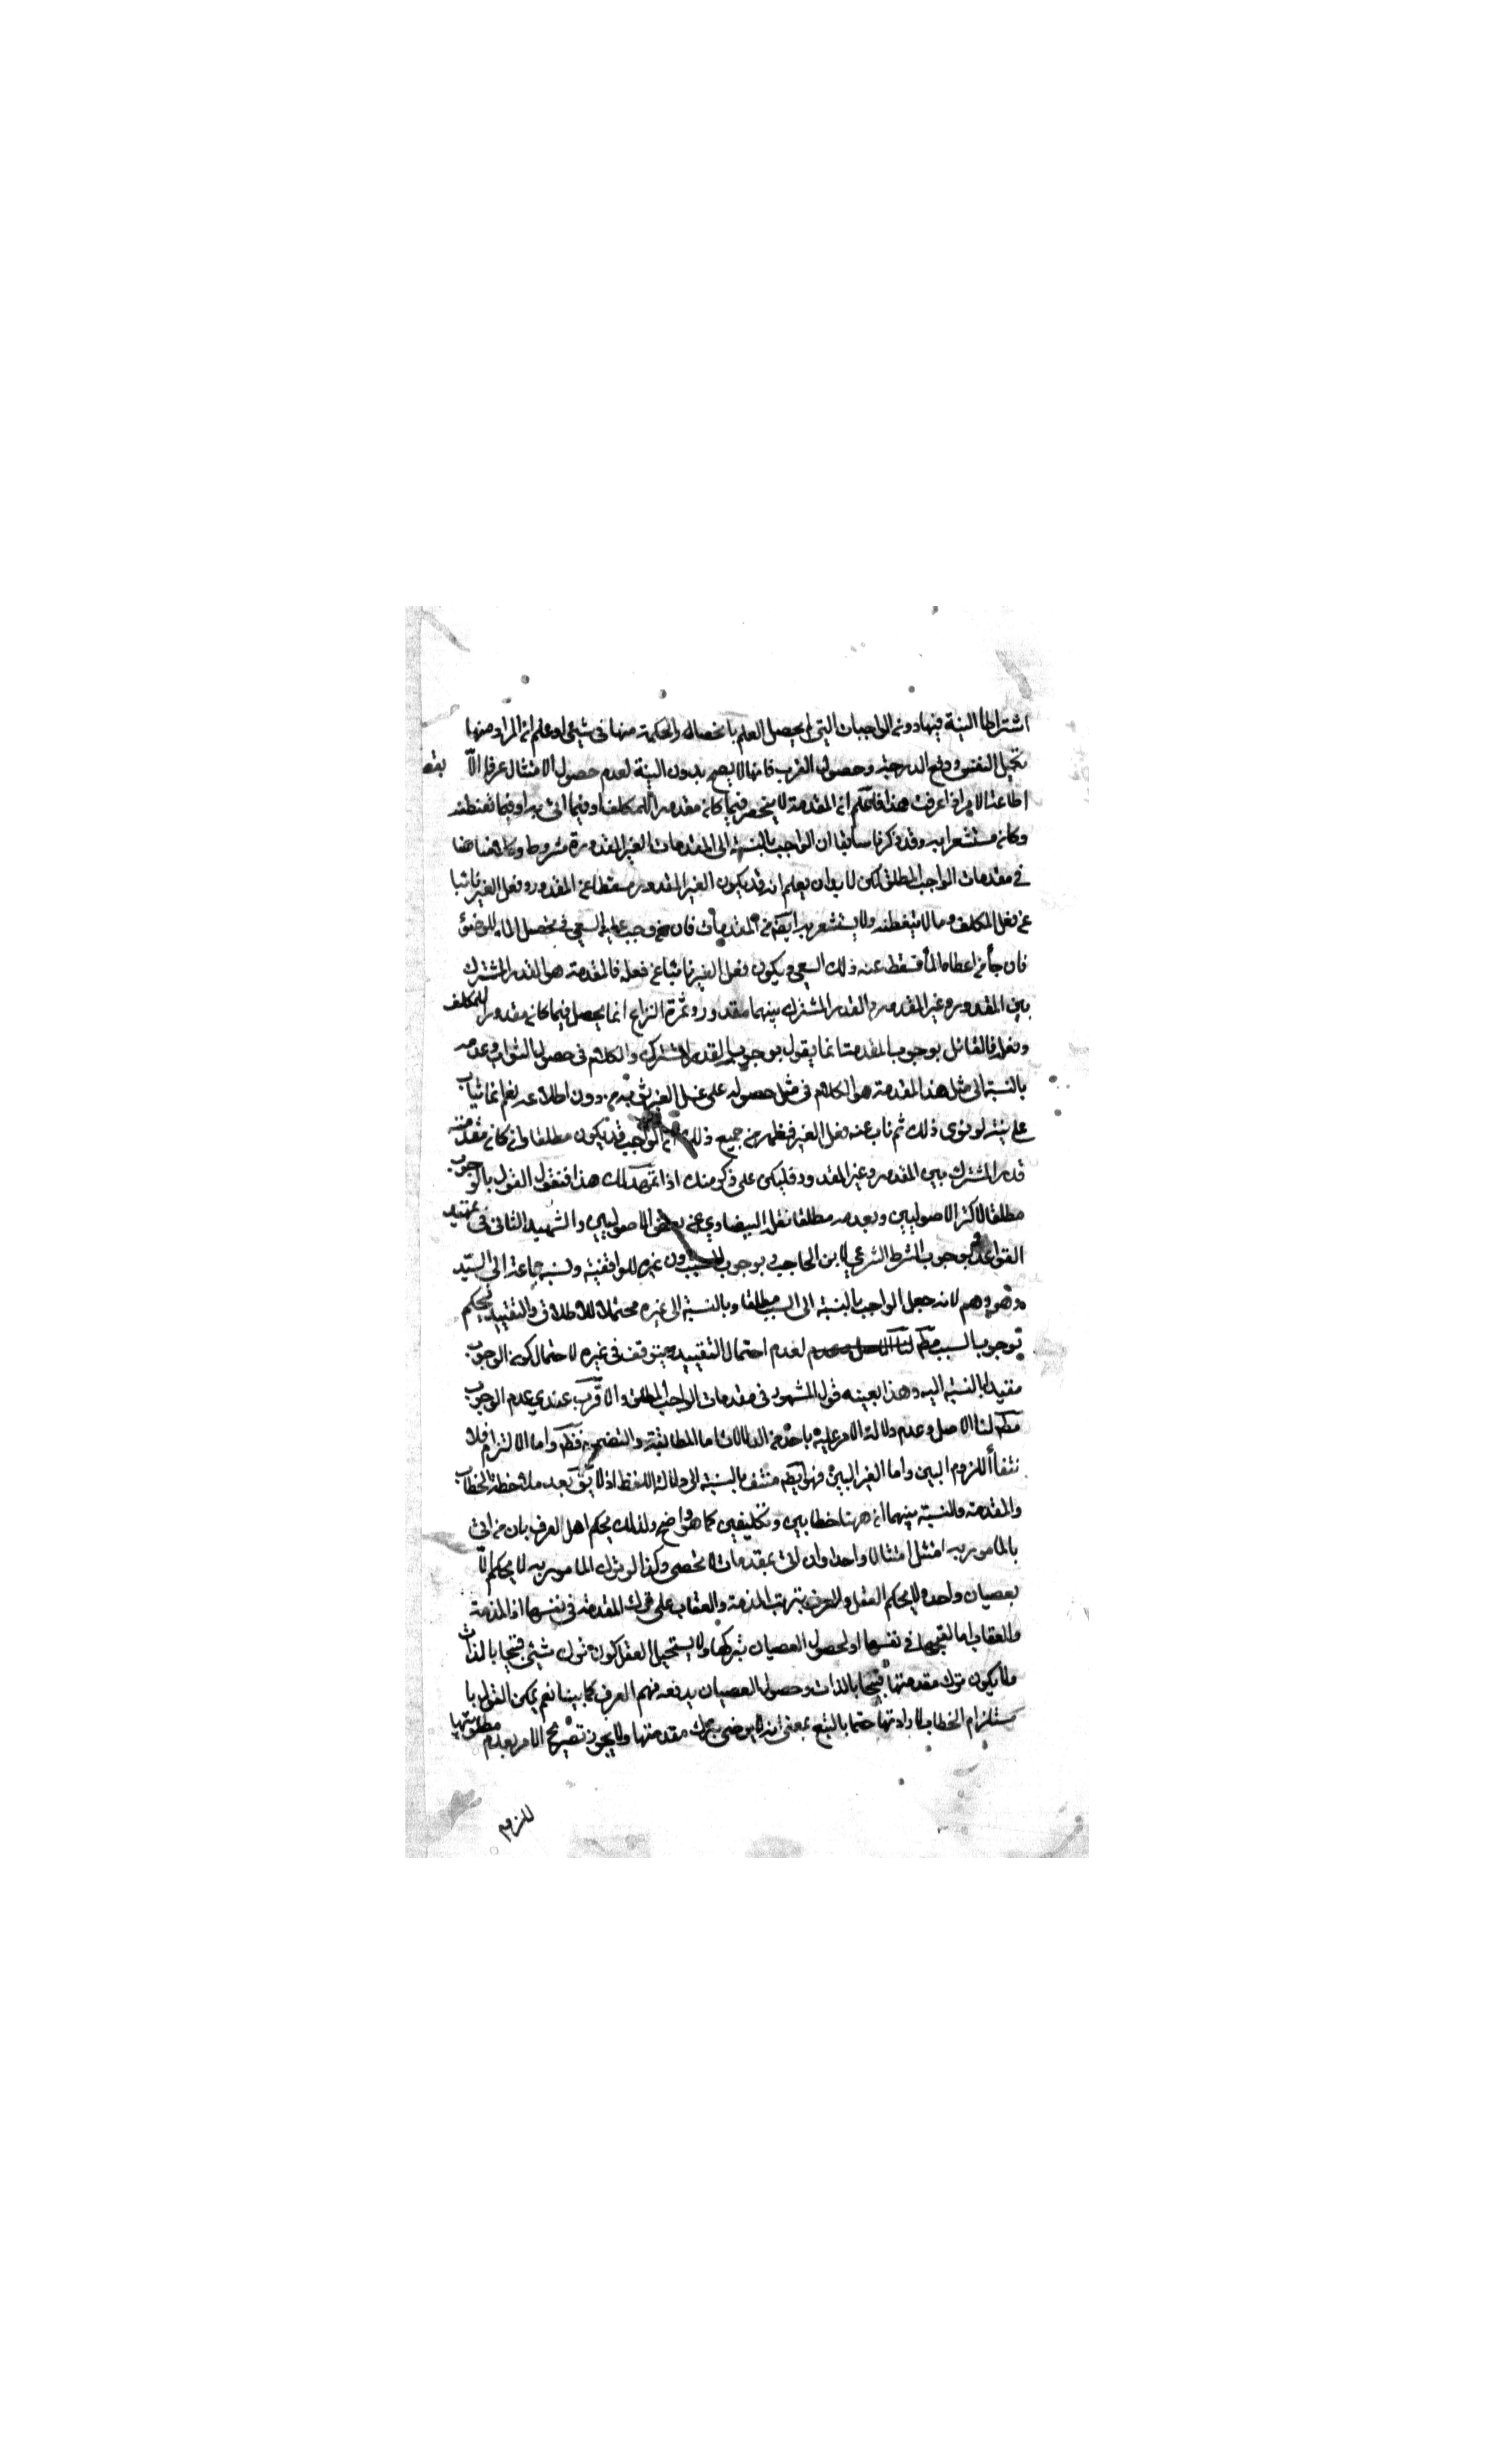 اشتراط النية فيها دون الواجبات التي لم يحصل العلم بانحصار الحكمة منها في شيئ او علم ان المراد منها
تكميل النفس ورفع الدرجة وحصول القرب فانها لا يصح بدون النية لعدم حصول الامتثال عرفا الا بقصد
اطاعة الامر اذا عرفت هذا فاعلم ان المقدمة لا ينحصر فيما كان مقدورا للمكلف او فيما اتى به او فيما تفطنه
وكان مستشعرا به وقد ذكرنا سابقا ان الواجب بالنسبة الى المقدمات الغير المقدورة مشروط وكلامنا هنا
في مقدمات الواجب المطلق لكن لا بد ان يعلم انه قد يكون الغير المقدور مسقطا عن المقدور وفعل الغير نائبا
عن فعل المكلف وما لا يتفطنه ولا يستشعر به ايضا من المقدمات فان من وجب عليه السعي في تحصيل الماء للوضوء
فان جاء من اعطاه الماء فسقط عنه ذلك السعي ويكون فعل الغير نائبا عن فعله فالمقدمة هو القدر المشترك
بين المقدور وغير المقدور والقدر المشترك بينهما مقدور وثمرة النزاع انما يحصل فيما كان مقدورا للمكلف
وفعله فالقائل بوجوب المقدمة انما يقول بوجوب القدر المشترك والكلام في حصول الثواب وعدمه
بالنسبة الى مثل هذا المقدمة هو الكلام في مثل حصوله على غسل الغير ثوبه دون اطلاعه نعم انما يثاب
على نيته لو نوى ذلك ثم ناب عنه فعل الغير فظهر من جميع ذلك ان الواجب قد يكون مطلقا وان كان مقدمته
قدر المشترك بين المقدور وغير المقدور فليكن على ذكر منك اذا تمهد لك هذا فنقول القول بالوجوب
مطلقا لاكثر الاصوليين وبعدمه مطلقا نقل البيضاوي عن بعض الاصوليين والشهيد الثاني في تمهيد
القواعد وبوجوب الشرط الشرعي لابن الحاجب وبوجوب السبب دون غيره للواقفية ونسبه جماعة الى السيد
وهو وهم لانه جعل الواجب بالنسبة الى السبب مطلقا وبالنسبة الى غيره محتملا للاطلاق والتقييد فيحكم
بوجوب السبب مطم لعدم احتمال التقييد ويتوقف في غيره لاحتمال كون الوجوب
مقيدا بالنسبة اليه وهذا بعينه قول المشهور في مقدمات الواجب المطلق والاقرب عندي عدم الوجوب
مطم لنا الاصل وعدم دلالة الامر عليه باحد من الدلالات اما المطابقة والتضمن فظم واما الالتزام فلا
نتفاء اللزوم البين واما الغير البين فهو ايضم منتف بالنسبة الى دلالة اللفظ اذ لا يق بعد ملاحظة الخطاب
والمقدمة والنسبة بينهما ان ههنا خطابين وتكليفين كما هو واضح ولذلك يحكم اهل العرف بان من اتى
بالمامور به امتثل امتثالا واحدا وان اتى بمقدمات لا تحصى وكذا لو ترك المامور به لا يحكم الا
بعصيان واحد ولا يحكم العقل والعرف بترتب المذمة والعقاب على ترك المقدمة في نفسها اذ المذمة
والعقاب اما لقبحها في نفسها او لحصول العصيان بتركها ولا يستحيل العقل كون ترك شيئ قبيحا بالذات
ولا يكون ترك مقدمتها قبيحا بالذات وحصول العصيان يدفعه فهم العرف كما بينا نعم يمكن القول با
ستلزام الخطاب لارادتها حتما بالتبع بمعنى انه لا يرضى بترك مقدمتها ولا يجوز تصريح الامر بعدم مطلوبيتها
للزوم